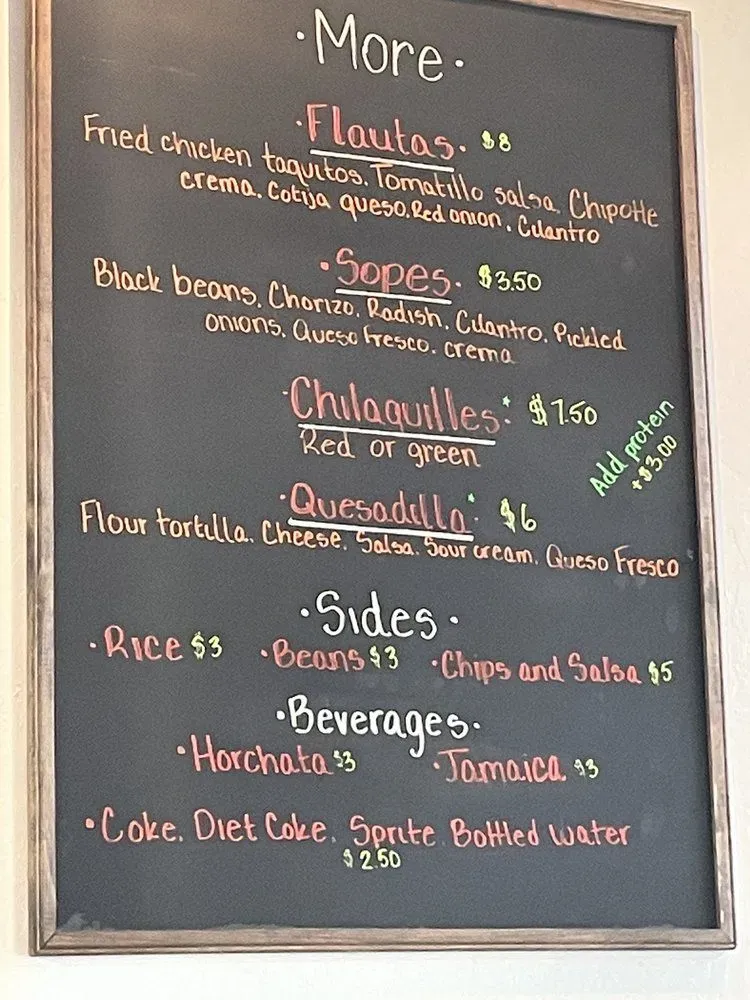 ·More·
·Flautas· $8
Fried chicken taquitos. Tomatillo salsa. Chipotle
crema. Cotija queso. Red onion. Cilantro
·Sopes· $3.50
Black beans. Chorizo. Radish. Cilantro. Pickled
onions. Queso fresco. crema
·Chilaquilles*· $7.50
Red or green
Add protein
+$3.00
·Quesadilla*· $6
Flour tortilla. Cheese. Salsa. Sour cream. Queso Fresco
·Sides·
·Rice $3 ·Beans $3 ·Chips and Salsa $5
·Beverages·
·Horchata $3 ·Jamaica $3
·Coke. Diet Coke. Sprite. Bottled water
$2.50